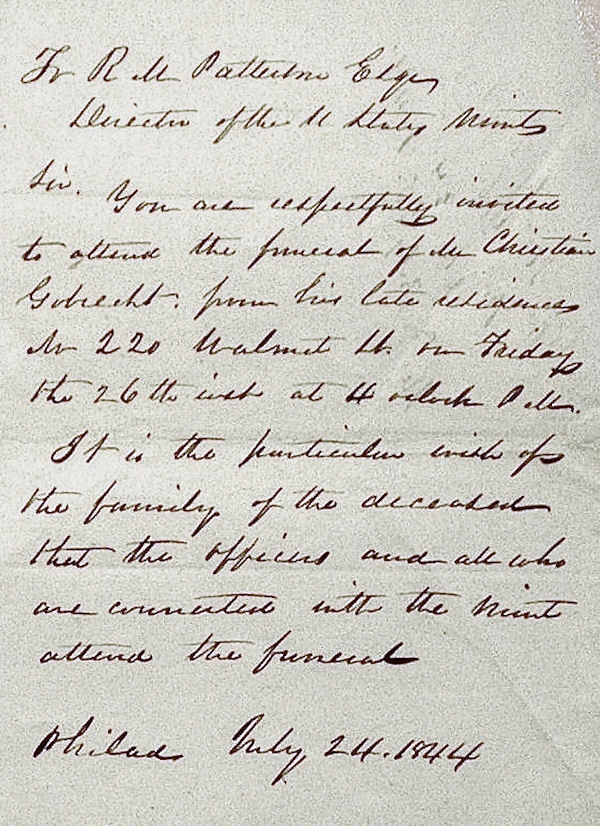 To R M Patterson Esqr
Director of the U States Mint
Sir. You are respectfully invited
to attend the funeral of Mr Christian
Gobrecht. from his late residence
No 220 Walnut St. on Friday
the 26th inst at 4 oclock P M.
It is the particular wish of
the family of the deceased
that the officers and all who
are connected with the Mint
attend the funeral
Philada July 24. 1844